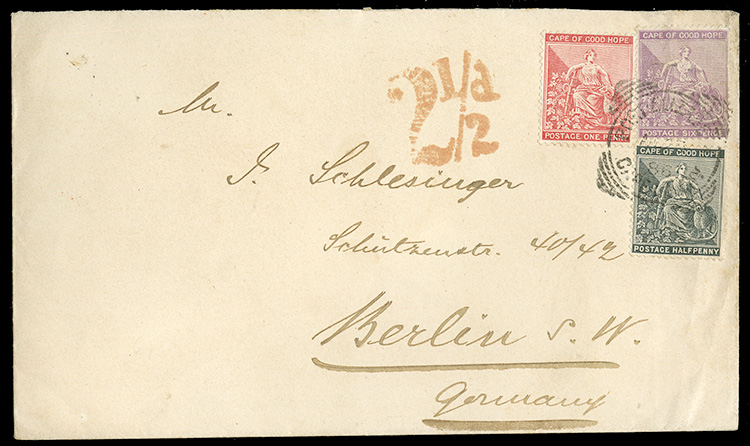 CAPE OF GOOD HOPE
POSTAGE ONE PENNY
CAPE OF GOOD HOPE
POSTAGE SIX PENCE
CAPE OF GOOD HOPE
POSTAGE HALFPENNY
2 1/2 d
Mr.
J. Schlesinger
Schützenstr. 40/42
Berlin S. W.
Germany